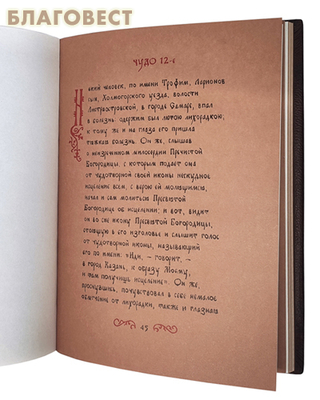 БЛАГОВЕСТ
ЧУДО 12-е
Некий человек, по имени Трофим, Ларионов
сын, Холмогорского уезда, волости
Лисестровской, в городе Самаре, впал
в болезнь: одержим был лютою лихорадкою;
к тому же и на глаза его пришла
тяжкая болезнь. Он же, слышав
о неизреченном милосердии Пречистой
Богородицы, с которым подает она
от чудотворной своей иконы нескудное
исцеление всем, с верою ей молящимся,
начал и сам молиться Пресвятой
Богородице об исцелении; и вот, видит
он во сне икону Пресвятой Богородицы,
стоящую в его изголовье и слышит голос
от чудотворной иконы, называющий
его по имени: «Иди, – говорит, –
в город Казань, к образу Моему,
и там получишь исцеление». Он же,
проснувшись, почувствовал в себе немалое
облегчение от лихорадки, также и глазная
45